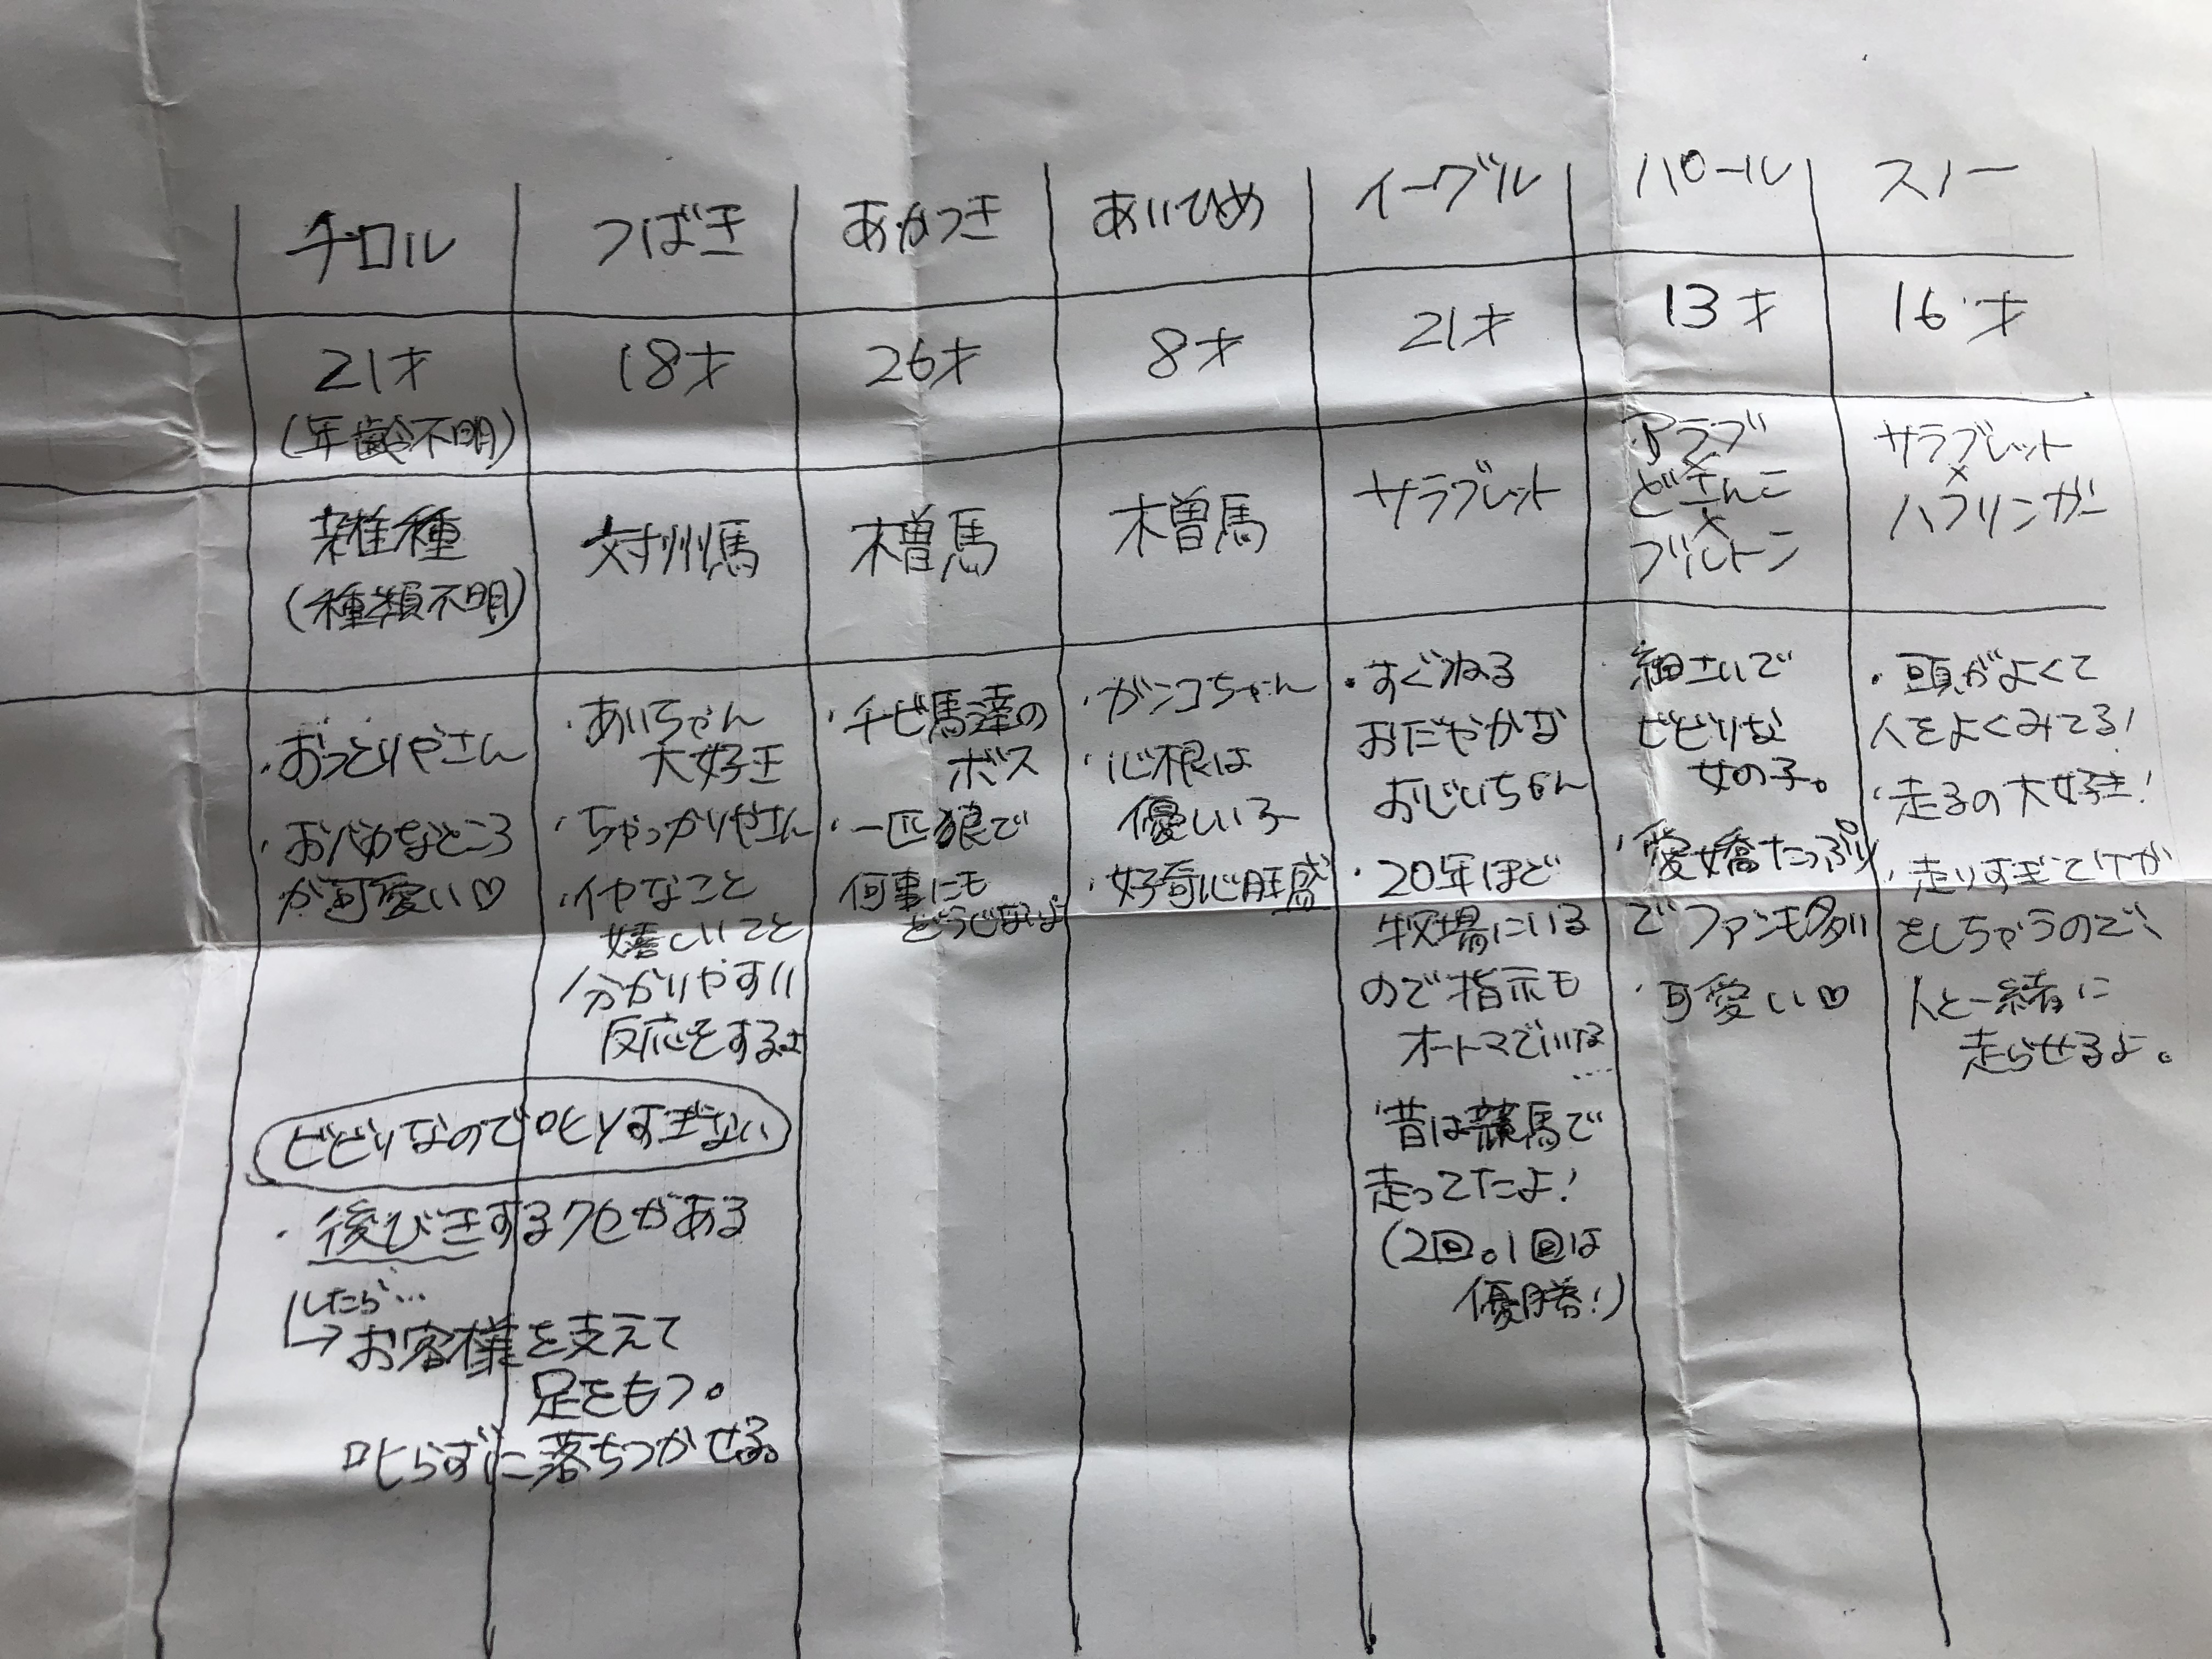 チロル
つばき
あかつき
あいひめ
イーグル
パール
スノー
21才
(年齢不明)
18才
26才
8才
21才
13才
16才
雑種
(種類不明)
対州馬
木曽馬
木曽馬
サラブレット
アラブ
×
どさんこ
×
ブルトン
サラブレット
×
ハフリンガー
・おっとりやさん
・おバカなところ
が可愛い♡
・あいちゃん
大好き
・ちゃっかりやさん
・イヤなこと
嬉しいこと
分かりやすい
反応をするよ
・チビ馬達の
ボス
・一匹狼で
何事にも
どうじないよ
・ガンコちゃん
・心根は
優しい子
・好奇心旺盛
・すぐねる
おだやかな
おじいちゃん
・20年ほど
牧場にいる
ので指示も
オートマでいける
....
・昔は競馬で
走ってたよ!
(2回。1回は
優勝!)
・細さいで
ビビりな
女の子。
・愛嬌たっぷり
でファンも多い
・可愛い♡
・頭がよくて
人をよくみてる!
・走るの大好き!
・走りすぎてケガ
をしちゃうので、
人と一緒に
走らせるよ。
ビビりなので叱りすぎない
・後びきするクセがある
したら…
→お客様を支えて
足をもつ。
叱らずに落ちつかせる。